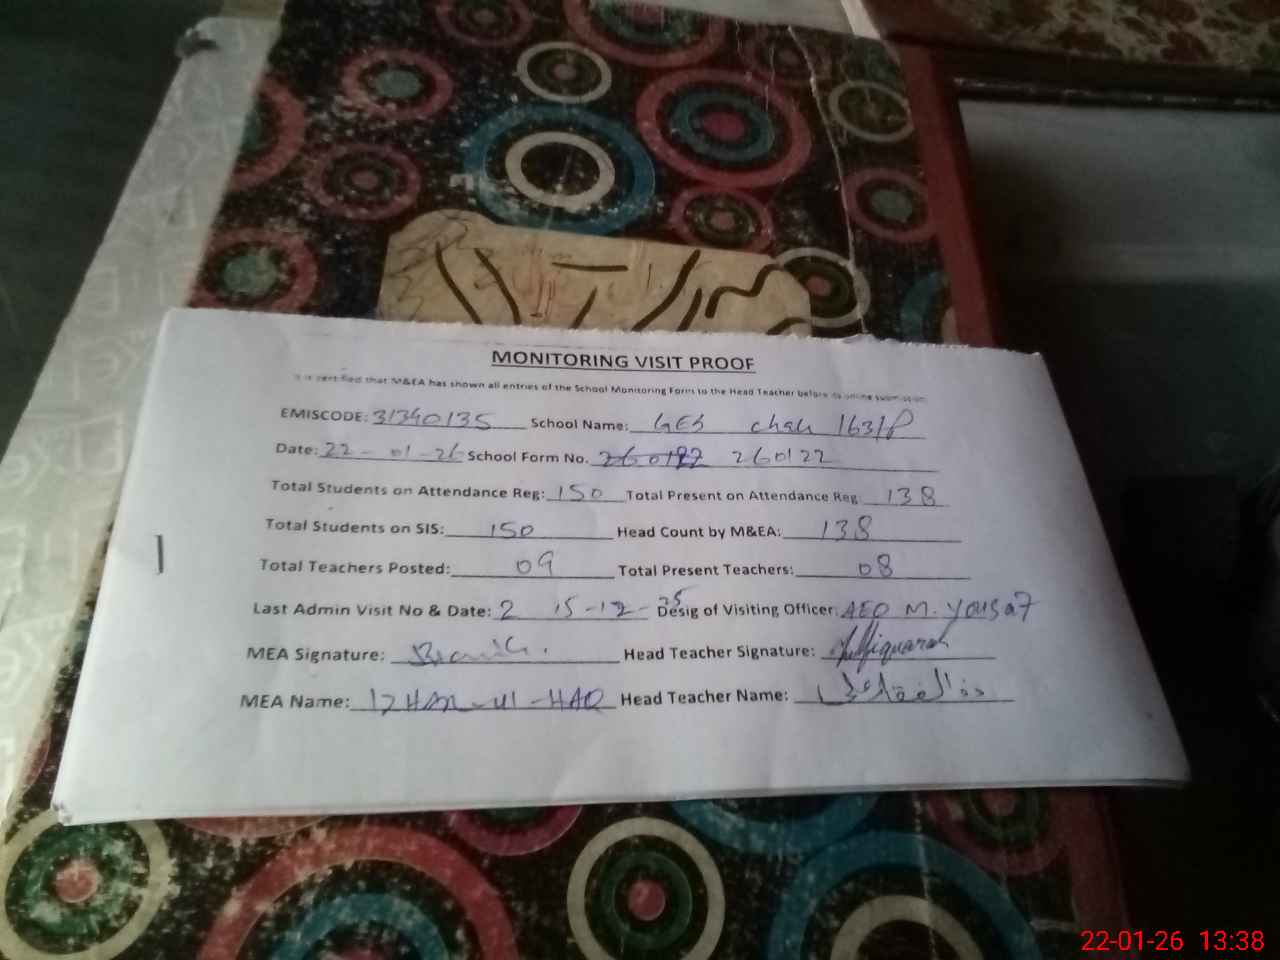 MONITORING VISIT PROOF
It is certified that M&EA has shown all entries of the School Monitoring Form to the Head Teacher before its online submission
EMISCODE: 31340135 School Name: GES Chak 163/P
Date: 22-01-26 School Form No. 260122 260122
Total Students on Attendance Reg: 150 Total Present on Attendance Reg 138
Total Students on SIS: 150 Head Count by M&EA: 138
Total Teachers Posted: 09 Total Present Teachers: 08
Last Admin Visit No & Date: 2 15-12-25 Desig of Visiting Officer: AEO M. Yousaf
MEA Signature: Head Teacher Signature:
MEA Name: IZHAR-UL-HAQ Head Teacher Name: ذوالفقار علی
22-01-26 13:38